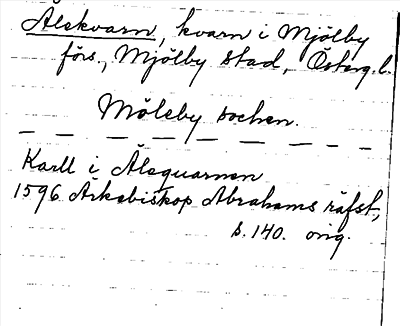 Alskvarn, kvarn i Mjölby
förs., Mjölby stad, Österg. l.
Möleby socken.
Karll i Ålsquarnen
1596 Ärkebiskop Abrahams räfst,
s. 140. orig.